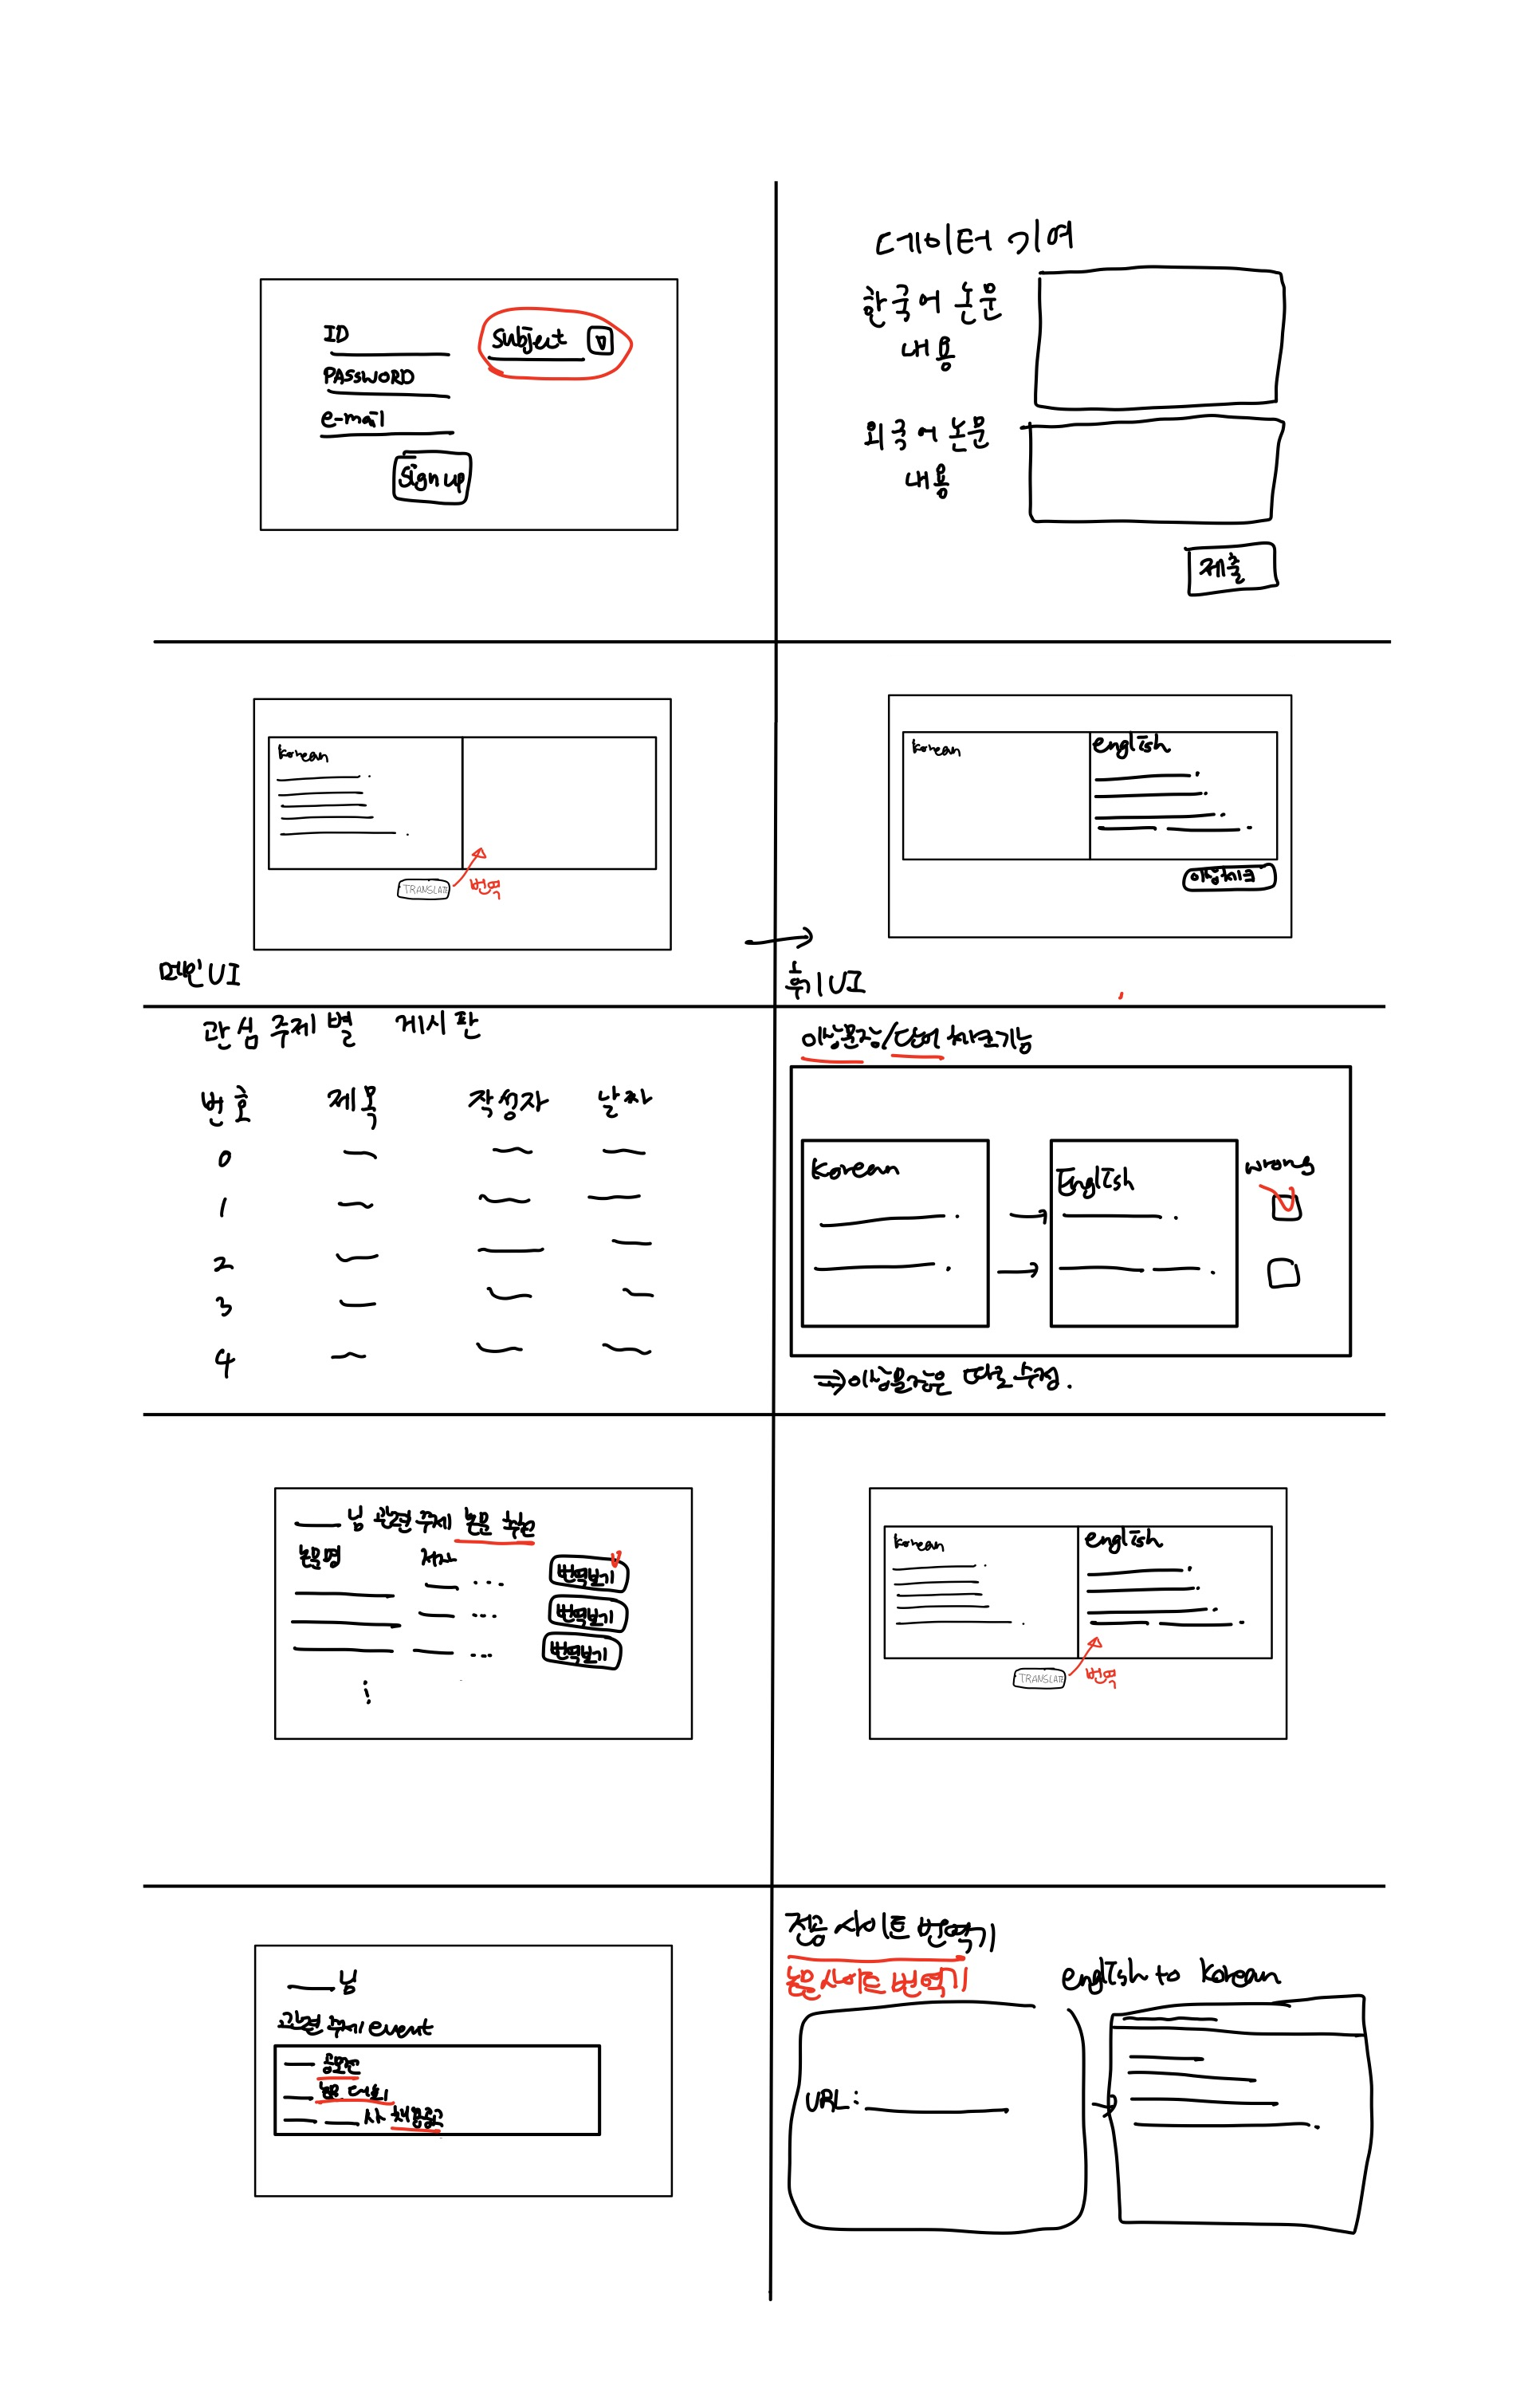 ID
Subject
PASSWORD
e-mail
Sign up
데이터 기여
한국어 논문
내용
외국어 논문
내용
제출
korean
TRANSLATE
번역
메인 UI
korean
english
이상체크
후기 UI
관심 주제별 게시판
번호 제목 작성자 날짜
0
1
2
3
4
이상문장/단어 체크기능
Korean
English
wrong
⇒이상문장은 따로 수정.
님 관련주제 논문 추천
논문명 저자
번역보기
번역보기
번역보기
korean
english
TRANSLATE
번역
님
관련 주제 event
공모전
논문 대회
사 채용공고
전공 사이트 번역기
논문 사이트 번역기
english to korean
URL: